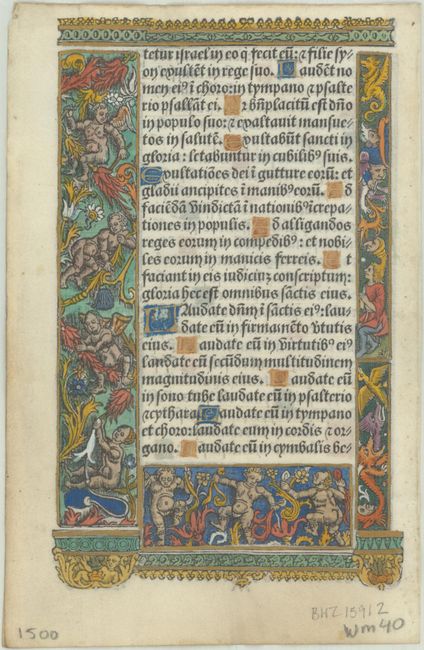 tetur israel in eo q̄ fecit eū: ⁊ filie sy-
on exultēt in rege suo. Laudēt no
men ei⁹ ī choro: in tympano ⁊ psalte
rio psallāt ei. Qr bn̄placitū est dn̄o
in populo suo: ⁊ exaltauit mansue-
tos in salutē. Exultabūt sancti in
gloria: letabuntur in cubilib⁹ suis.
Exultatiōes dei ī gutture eorū: et
gladii ancipites ī manib⁹ eorū. Ad
faciēdā vindictā ī nationib⁹ īcrepa-
tiones in populis. Ad alligandos
reges eorum in compedib⁹: et nobi-
les eorum in manicis ferreis. Ut
faciant in eis iudiciuz conscriptum:
gloria hec est omnibus sāctis eius.
Laudate dn̄m ī sāctis ei⁹: lau-
date eū in firmamēto v̓tutis
eius. Laudate eū in virtutib⁹ ei⁹
laudate eū secūdum multitudinem
magnitudinis eius. Laudate eū
in sono tube laudate eū in psalterio
⁊ cythara. Laudate eū in tympano
et choro: laudate eum in cordis ⁊ or-
gano. Laudate eū in cymbalis be-
1500
BHZ 15912
wm40